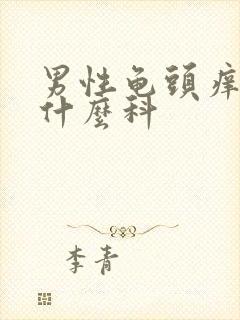 男性龟頭痒
什麼科
李青